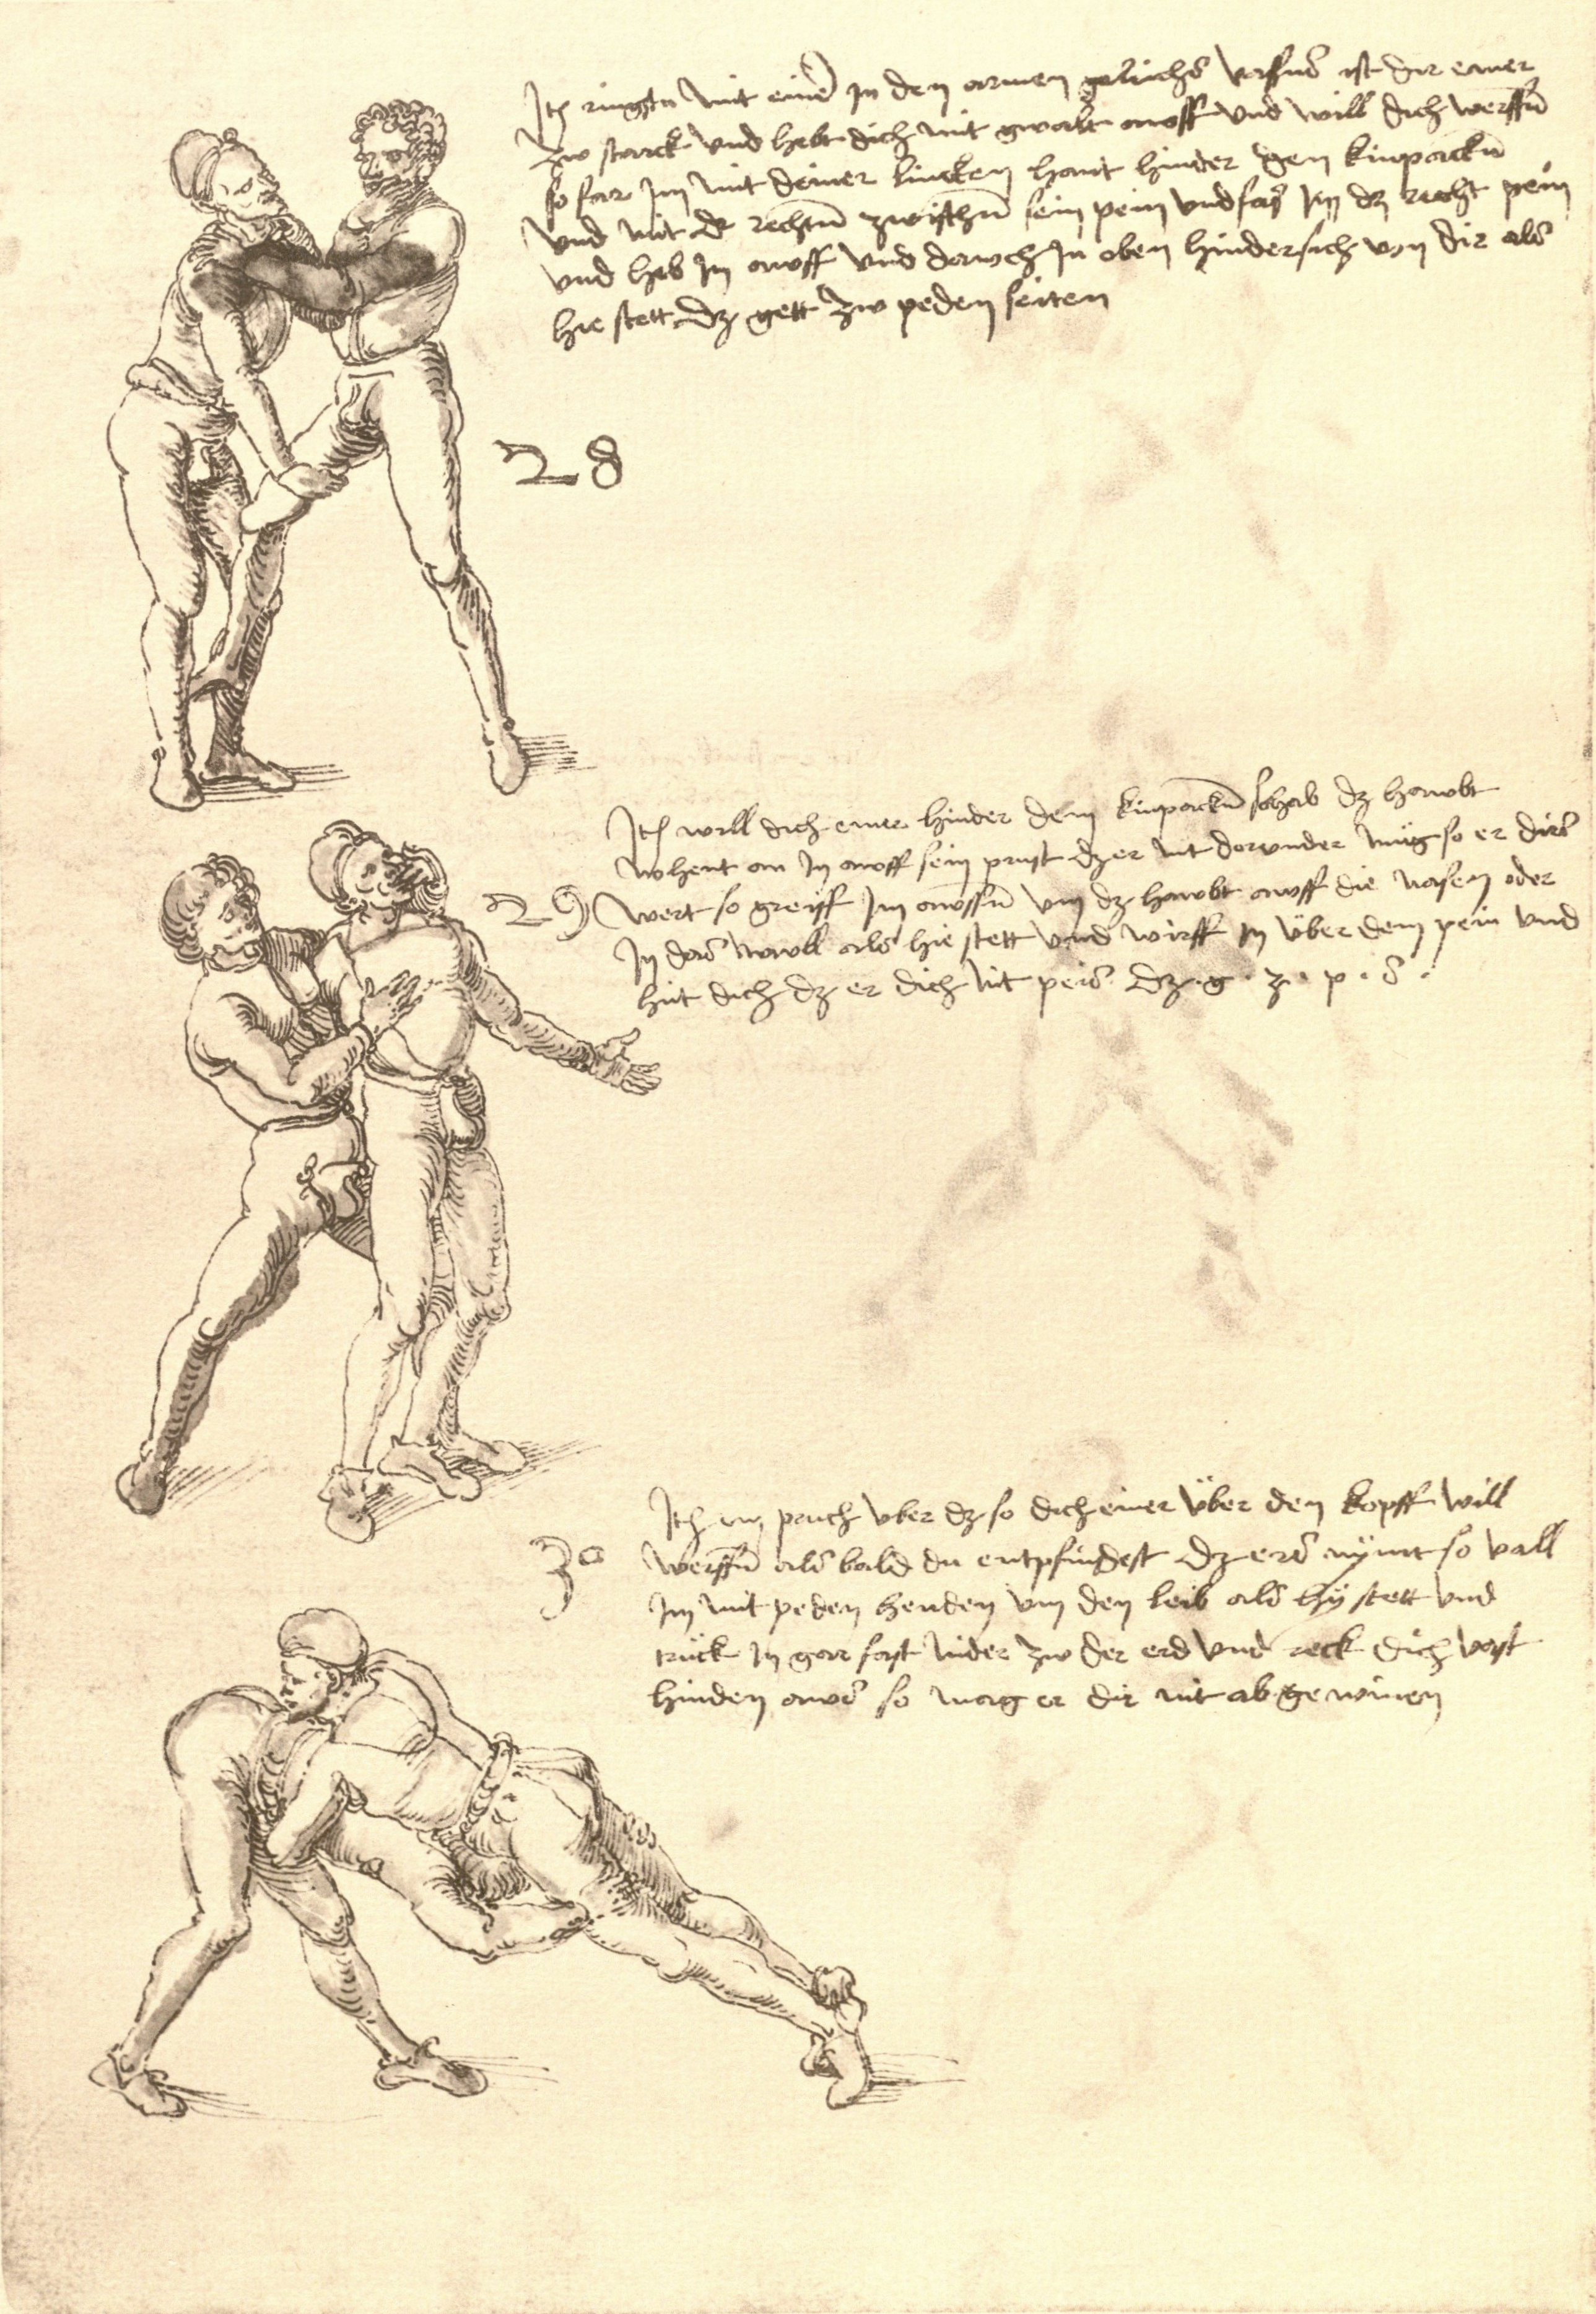 Itē ringstu mit einē in den armen gelichs vassns ist dir einer
zw starck und hebt dich mit gwalt awff und will dich werffn̄
so far im mit deiner lincken hant hinder den kinpackn̄
und mit dr rechtn̄ zwischn̄ sein pein und fas im dz recht pein
und heb in awff und druch in oben hindersich von dir als
hie stett dz gett zw peden seiten
28
Itē will dich einer hinder dem kinpackn̄ so hab dz hawbt
nohent an in awff sein prust dz er nit dorunder müg so er dirs
29 wert so greiff im awssn̄ um dz hawbt awff die nasen oder
in das mawll als hie stett und wirff in über dem pein und
hüt dich dz er dich nit peis dz. g. z. p. s.
Itē ein pruch uber dz so dich einer über den kopff will
30 werffn̄ als bald du entpfindest dz ers nÿmt so vall
im mit peden henden um den leib als hÿ stett und
trück in gar fast nider zw der erd und reck dich vast
hinden aws so mag er dir nit ab gewinen